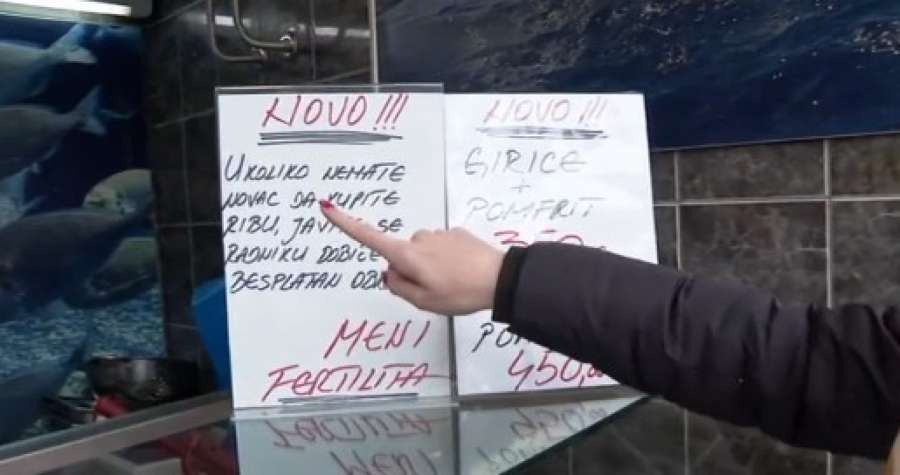 NOVO!!!
UKOLIKO NEMATE
NOVAC DA KUPITE
RIBU, SE
RADNIKU
BESPLATAN
MENI
FERTILITA
NOVO!!!
GIRICE
+
POMFRIT